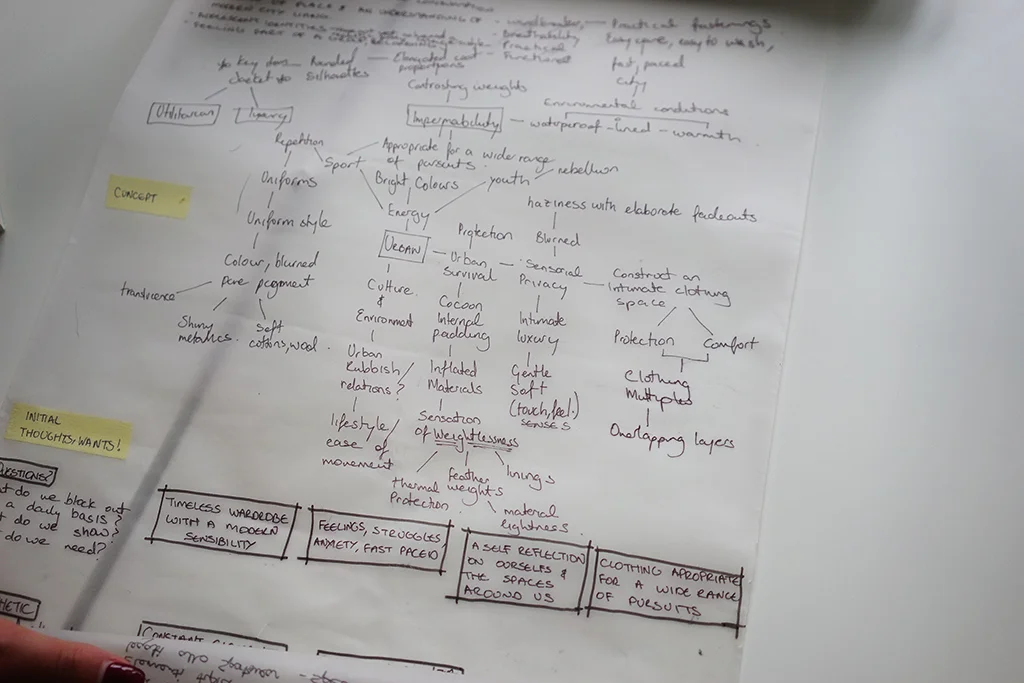 MODERN CITY LIVING.
FEELING PART OF A
Practical fastenings
breathability
Easy care, easy to wash,
Practical
Functional
fast, paced
city
Key items - Rounded - Elongated coat
proportions
Jacket silhouettes
Contrasting weights
Environmental conditions
Utilitarian
Impermability - waterproof - lined - warmth
Repetition
Sport
Appropriate for a wide range
of pursuits.
Bright Colours
youth
rebellion
Energy
Uniforms
CONCEPT
haziness with elaborate fadeouts
Uniform style
Protection
Blurred
URBAN
Urban
Survival
Sensorial
Privacy
Construct an
Intimate clothing
space
Colour, blurred
pure pigment
translucence
Shiny
metallics.
Soft
cottons, wool.
Culture
&
Environment
Cocoon
Internal
padding
Intimate
luxury
Protection
Comfort
Urban
Rubbish/
relations?
Inflated
Materials
Gentle
Soft
(touch, feel.)
SENSES
Clothing
Multiples
Overlapping layers
lifestyle/
ease of
movement
Sensation
of Weightlessness
thermal
Protection
feather
weights
linings
material
lightness.
INITIAL
THOUGHTS, WANTS!
do we block out
a daily basis?
do we show?
do we need?
TIMELESS WARDROBE
WITH A MODERN
SENSIBILITY
FEELINGS, STRUGGLES
ANXIETY, FAST PACED
A SELF REFLECTION
ON OURSELVES &
THE SPACES
AROUND US
CLOTHING APROPRIATE
FOR A WIDE RANGE
OF PURSUITS
CONSTANT